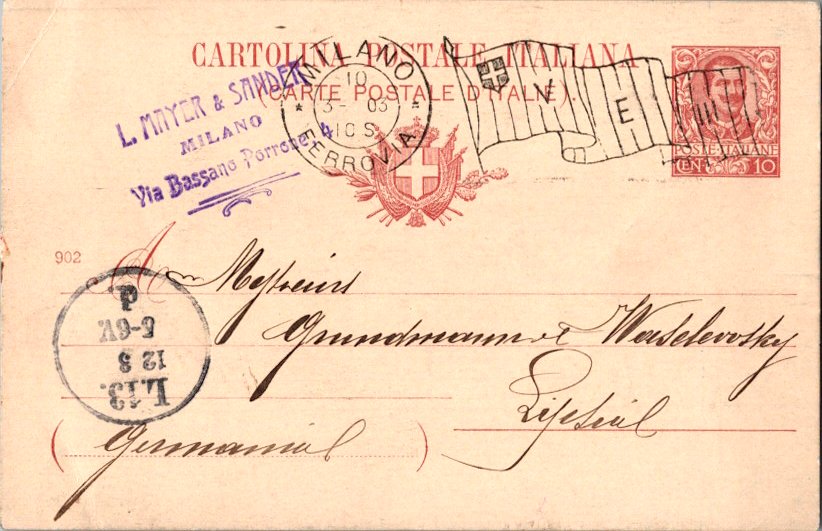 CARTOLINA POSTALE ITALIANA
(CARTE POSTALE D'ITALIE).
L. MAYER & SANDER
MILANO
Via Bassano Porrone 4
MILANO
10
3- 03
10 S
FERROVIA
V E III
POSTE ITALIANE
CEN 10
902
A
Messieurs
Grundmann & Waselewsky
Lipsia
(Germania)
L.13.
12 3
5-6V.
d.